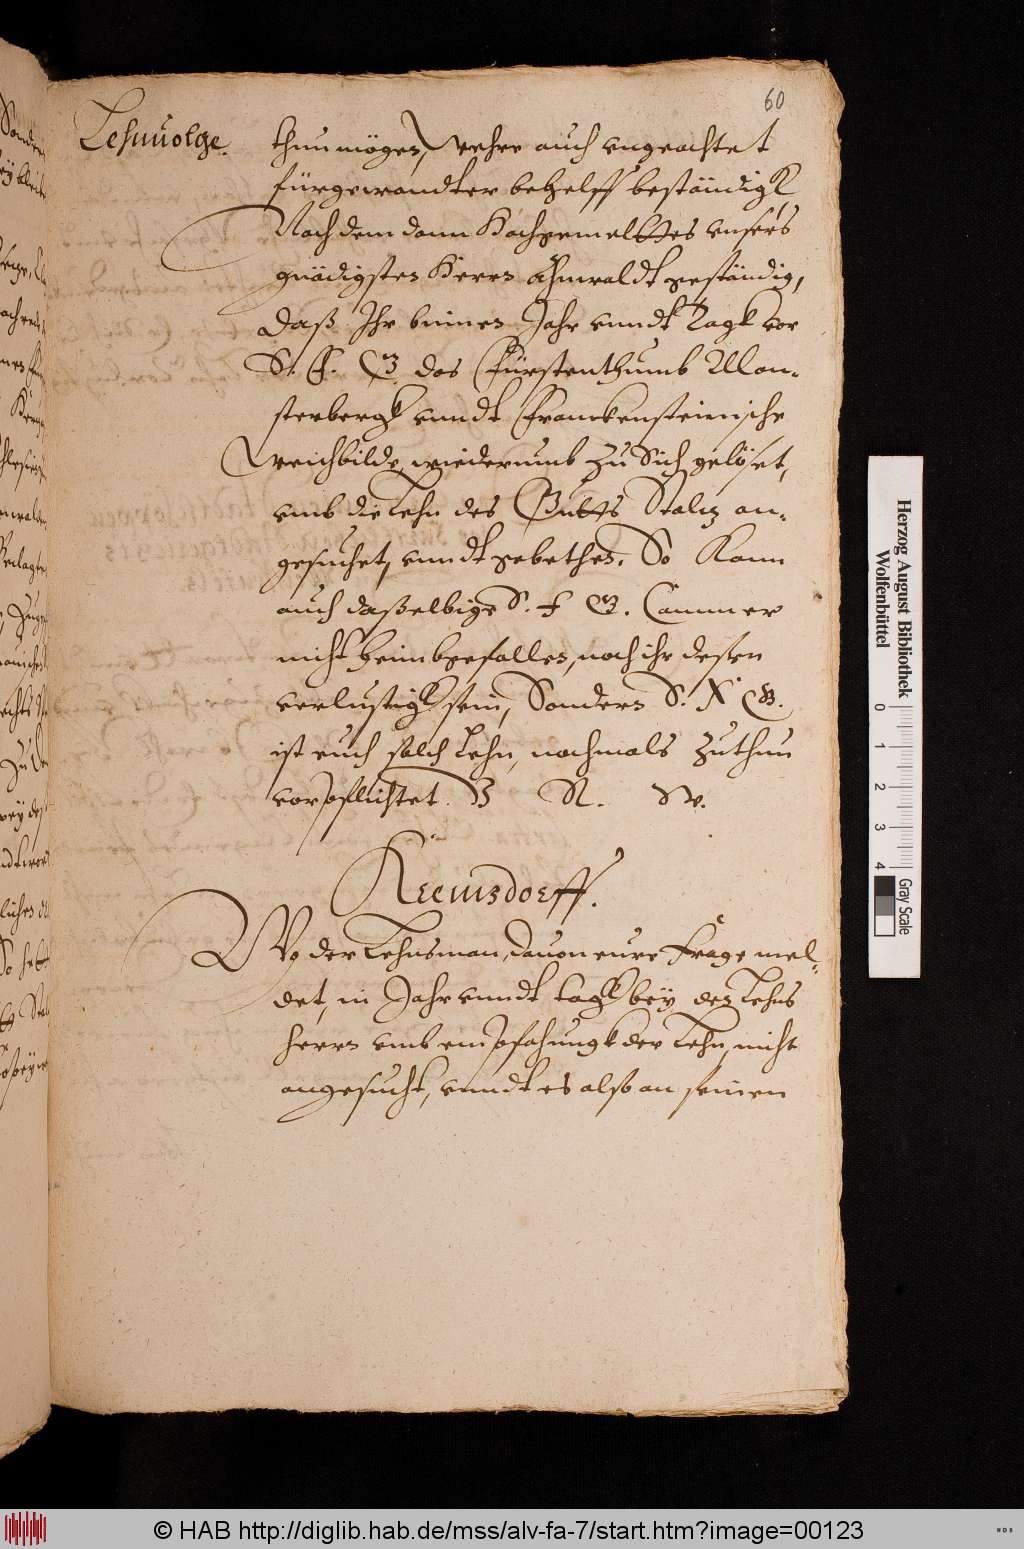 60
Lehnuolge.
thun mögen, wehre auch vngeachtet
fürgewandter behelff beständigk
Nachdem dann Hochgemeltes vnsers
gnädigsten Herrn Ahnwaldt geständig,
daß Ihr binnen Jahr vnndt Tagk vor
S. F. G. das Fürstenthumb Mon-
sterbergk vnndt Franckensteinische
weichbilde, wiederumb zu sich gelöset,
vmb die Lehn des Gutts Stolz an-
gesuchet, vnndt gebethen. So kann
auch daßelbige S. F. G. Cammer
nicht heimbgefallen, noch ihr deßen
verlustigk sein, Sondern S. F. G.
ist euch solch Lehn, nochmals zuthun
vorpflichtet. V R. W.
Reemsdorff.
Wo der Lehnsman, dauon eure Frage mel-
det, in Jahr vnndt tagk bey dem Lehns
herrn vmb empfahungk der Lehn nicht
angesucht, vnndt es also an seinem
Herzog August Bibliothek
Wolfenbüttel
0 1 2 3 4
Gray Scale
© HAB http://diglib.hab.de/mss/alv-fa-7/start.htm?image=00123